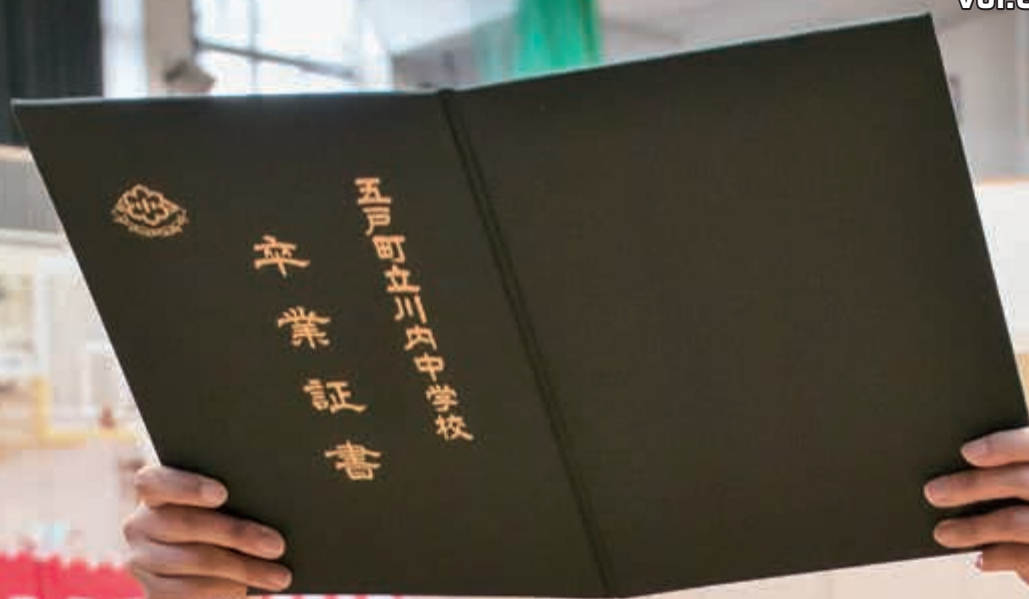 五戸町立川内中学校
卒業証書